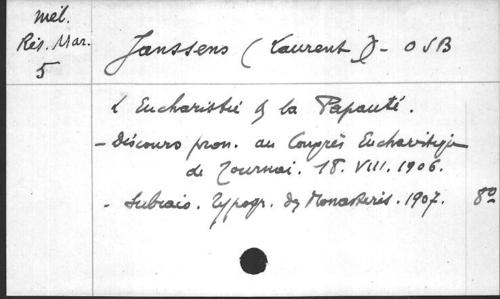 Mél.
Rés. Mar.
5
Janssens (Laurent) - OSB
L'Eucharistie & la Papauté.
- Discours pron. au Congrès Eucharistique
de Tournai. 18. VIII. 1906.
- Subiaco. Typogr. des Monastères. 1907. 8º